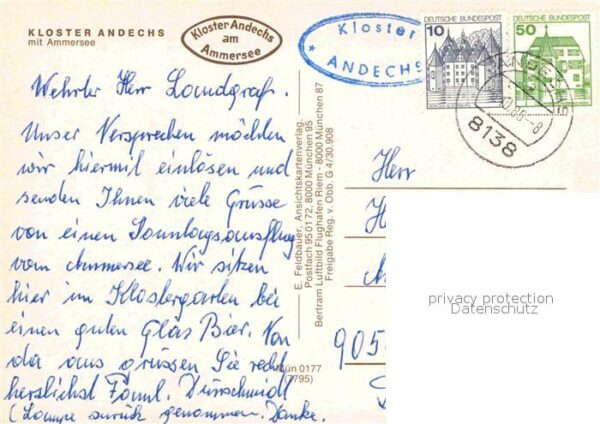 KLOSTER ANDECHS
mit Ammersee
Kloster Andechs
am
Ammersee
Kloster
ANDECHS
10 DEUTSCHE BUNDESPOST
50 DEUTSCHE BUNDESPOST
8138
Wehrter Herr Landgraf.
Unser Versprechen möchten
wir hiermit einlösen und
senden Ihnen viele Grüsse
von einen Sonntagsausflug
vom Ammersee. Wir sitzen
hier im Klostergarten bei
einen guten Glas Bier. Von
da aus grüssen Sie recht
herzlichst Faml. Dürschmidt
(Lampe zurück genommen. Danke.
E. Feldbauer, Ansichtskartenverlag,
Postfach 95 01 72, 8000 München 95
Bertram Luftbild Flughafen Riem - 8000 München 87
Freigabe Reg. v. Obb. G 4/30.908
0177
7795)
Herr
H
905
privacy protection
Datenschutz